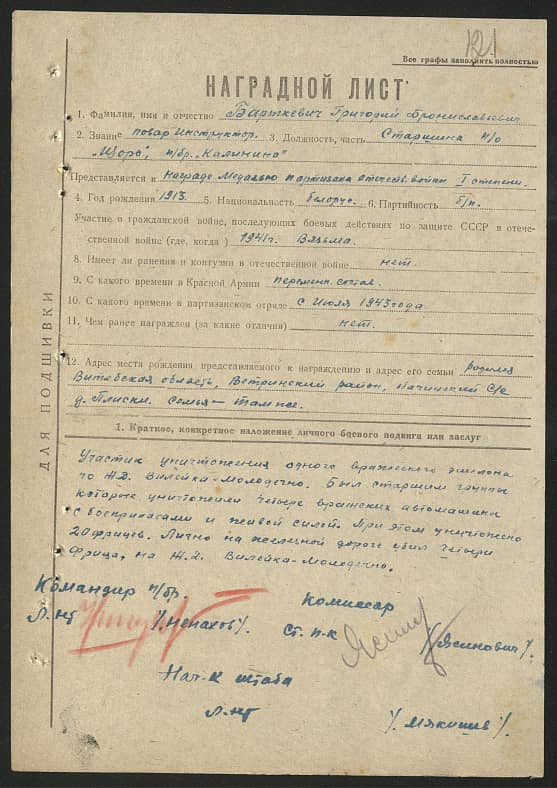 121
Все графы заполнять полностью
НАГРАДНОЙ ЛИСТ
1. Фамилия, имя и отчество Барткевич Григорий Брониславович
2. Звание повар Инструктор. 3. Должность, часть Старшина п/о
"Щорса", п/бр. "Калинина"
Представляется к награде Медалью партизана отечеств. войны I степени.
4. Год рождения 1913. 5. Национальность белорус. 6. Партийность б/п.
Участие в гражданской войне, последующих боевых действиях по защите СССР в отече-
ственной войне (где, когда) 1941г. Вязьма.
8. Имеет ли ранения и контузии в отечественной войне нет.
9. С какого времени в Красной Армии перемен. состав.
10. С какого времени в партизанском отряде с Июля 1943 года
11. Чем ранее награжден (за какие отличия) нет.
12. Адрес места рождения представляемого к награждению и адрес его семьи родился
Витебская область, Ветринский район, с/с
д. Плиски. семья — там же.
ДЛЯ ПОДШИВКИ
1. Краткое, конкретное изложение личного боевого подвига или заслуг
Участник уничтожения одного вражеского эшелона
по Ж.Д. Вилейка-Молодечно. Был старшим группы
которые уничтожили четыре вражеских автомашин
с боеприпасами и живой силой. При этом уничтожено
20 фрицев. Лично на железной дороге убил четыри
фрица, на Ж.Д. Вилейка-Молодечно.
Командир п/бр.
Л-нт /Ненахов/.
Комиссар
Ст. п-к /Ясинович/.
Нач-к штаба
Л-нт /Мякишев/.